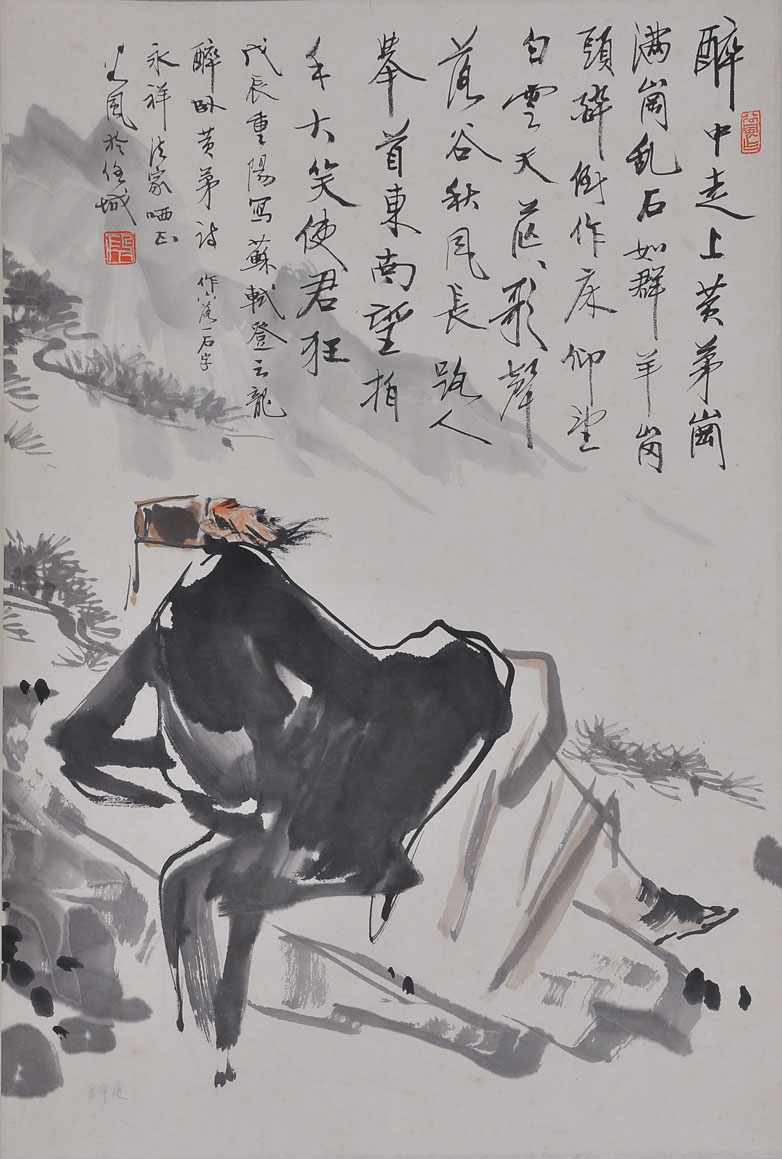 醉中走上黄茅崗
满崗乱石如群羊岗
頭醉倒作床仰望
白雲天茫、歌聲
落谷秋風長路人
舉首東南望拍
手大笑使君狂
戊辰重陽写蘇軾登云龍
醉卧黄茅詩 作下落一石字
永祥法家哂正
風於任城